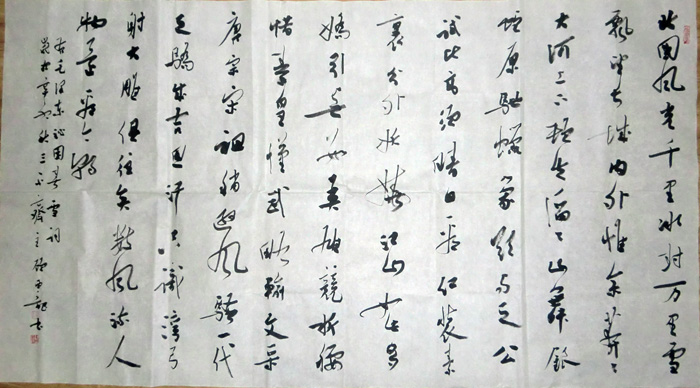 北国风光千里冰封万里雪
飘望长城内外惟余莽々
大河上下顿失滔々山舞银
蛇原驰蜡象欲与天公
试比高须晴日看红装素
裹分外妖娆江山如此多
娇引无数英雄竞折腰
惜秦皇汉武略输文采
唐宗宋祖稍逊风骚一代
天骄成吉思汗只识弯弓
射大雕俱往矣数风流人
物还看今朝
毛泽东沁园春雪词
岁於辛卯秋三斋主书